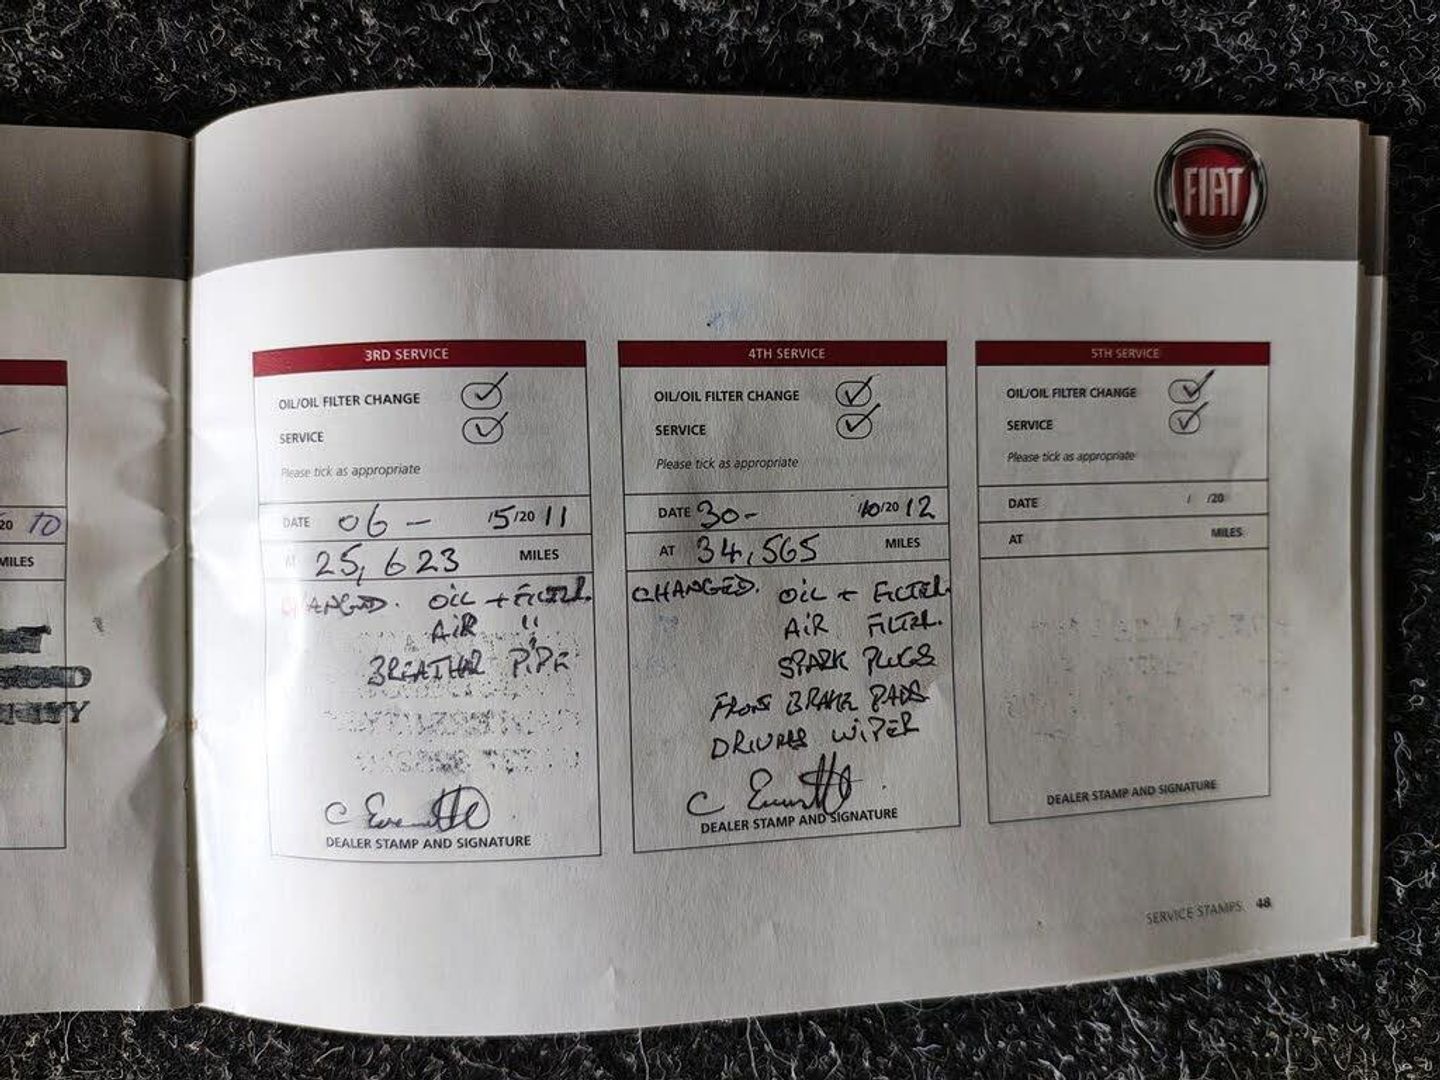 FIAT
20 10
MILES
3RD SERVICE
OIL/OIL FILTER CHANGE
SERVICE
Please tick as appropriate
DATE 06 - /5/20 11
AT 25,623 MILES
CHANGED. OIL + FILTER.
AIR "
BREATHER PIPE
C
DEALER STAMP AND SIGNATURE
4TH SERVICE
OIL/OIL FILTER CHANGE
SERVICE
Please tick as appropriate
DATE 30- /10/20 12
AT 34,565 MILES
CHANGED. OIL + FILTER.
AIR FILTER.
SPARK PLUGS
FRONT BRAKE PADS
DRIVERS WIPER
C
DEALER STAMP AND SIGNATURE
5TH SERVICE
OIL/OIL FILTER CHANGE
SERVICE
Please tick as appropriate
DATE / /20
AT MILES
DEALER STAMP AND SIGNATURE
SERVICE STAMPS 48